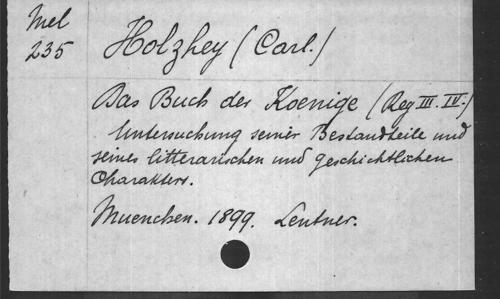 Mel
235
Holzhey (Carl.)
Das Buch der Koenige (Reg III. IV.)
Untersuchung seiner Bestandteile und
seines litterarischen und geschichtlichen
Charakters.
Muenchen. 1899. Lentner.